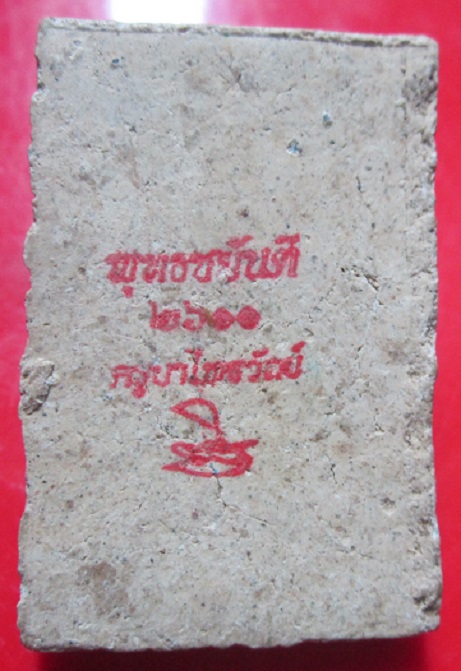 พุทธชยันตี
๒๖๐๐
ครูบาไพรวัลย์